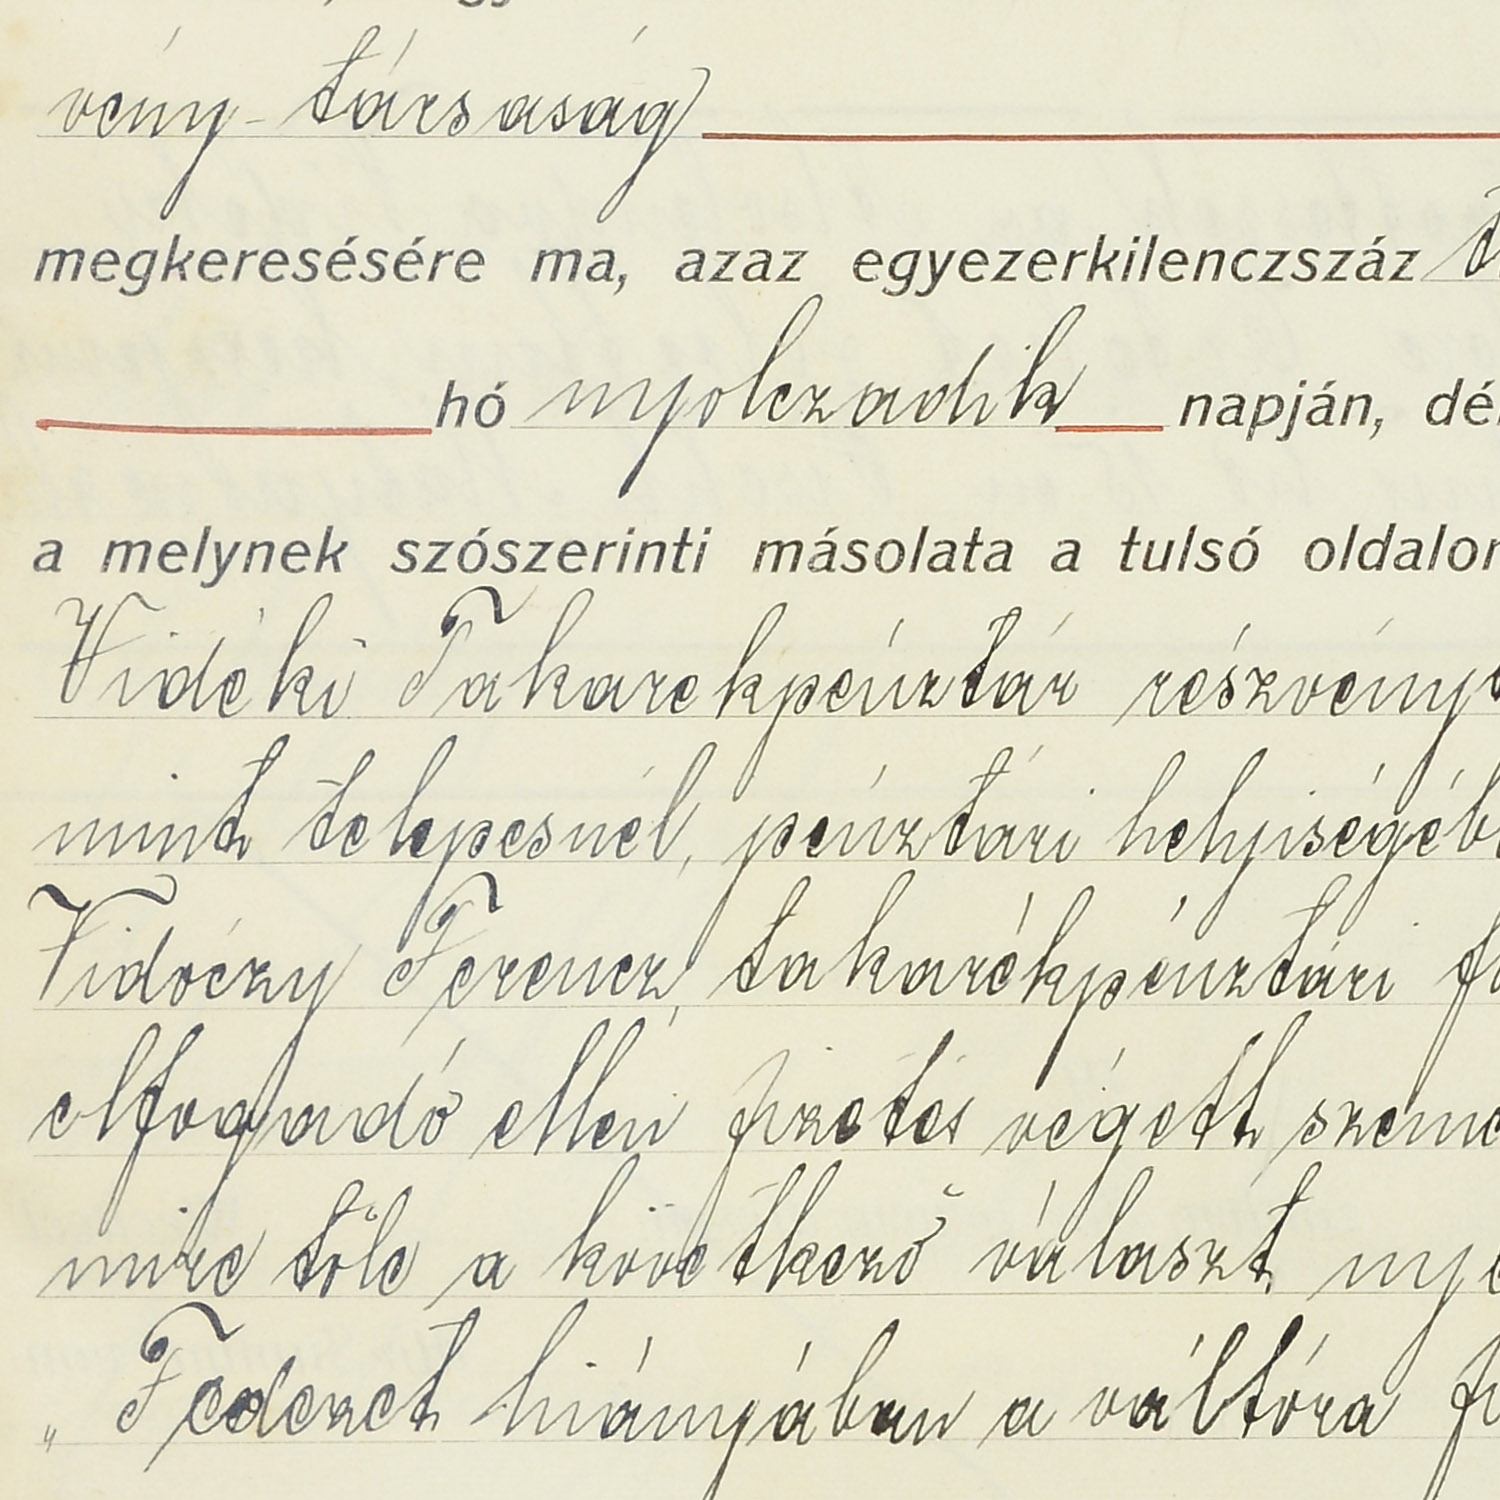 vény-társaság
megkeresésére ma, azaz egyezerkilenczszáz
hó nyolczadik napján, dé
a melynek szószerinti másolata a tulsó oldalon
Vidéki Takarekpénztár részvény
mint telepesnél, pénztári helyiségéb
Vidóczy Ferencz, takarékpénztári
elfogadó ellen fizetés végett szeme
mire tőle a következő választ nye
„Fedezet hiányában a váltóra